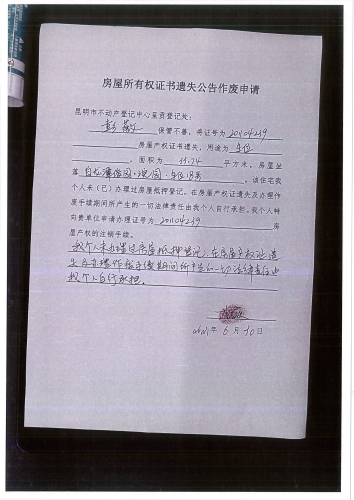 房屋所有权证书遗失公告作废申请
昆明市不动产登记中心呈贡登记处:
彭 保管不善,将证号为 201104219
房屋产权证书遗失,用途为 车位
,面积为 11.74 平方米,房屋坐
落 白龙潭 园·观园·车位18号 ,该住宅我
个人未(已)办理过房屋抵押登记。在房屋产权证遗失及办理作
废手续期间所产生的一切法律责任由我个人自行承担。我个人特
向贵单位申请办理证号为 201104219 房
屋产权的注销手续。
我个人未办理过房屋抵押登记,在房屋产权证遗
失及办理作废手续期间所产生的一切法律责任由
我个人自行承担。
年 6 月 10 日